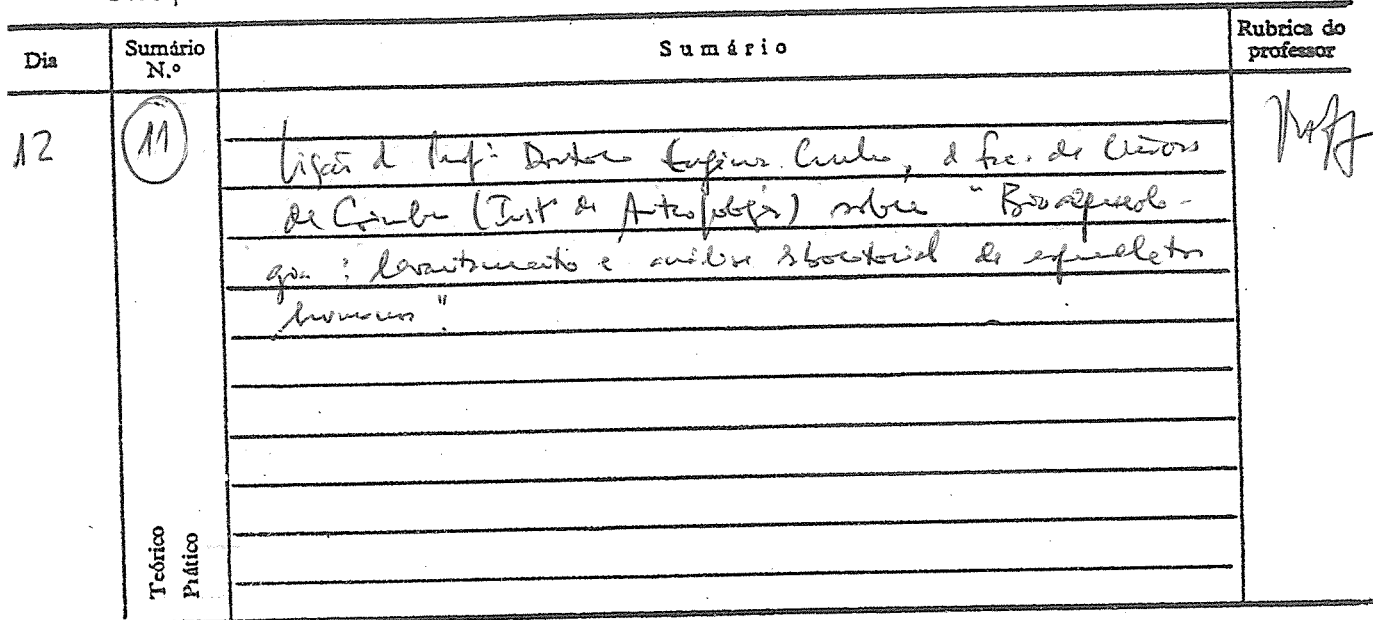 Dia
Sumário N.º
Sumário
Rubrica do professor
12
11
Lição d Prof.ª Doutora Eugénia Cunha, d Fac. de Ciências
de Coimbra (Inst. de Antropologia) sobre "Bioarqueolo-
gia: levantamento e análise laboratorial de esqueletos
humanos".
Teórico
Prático